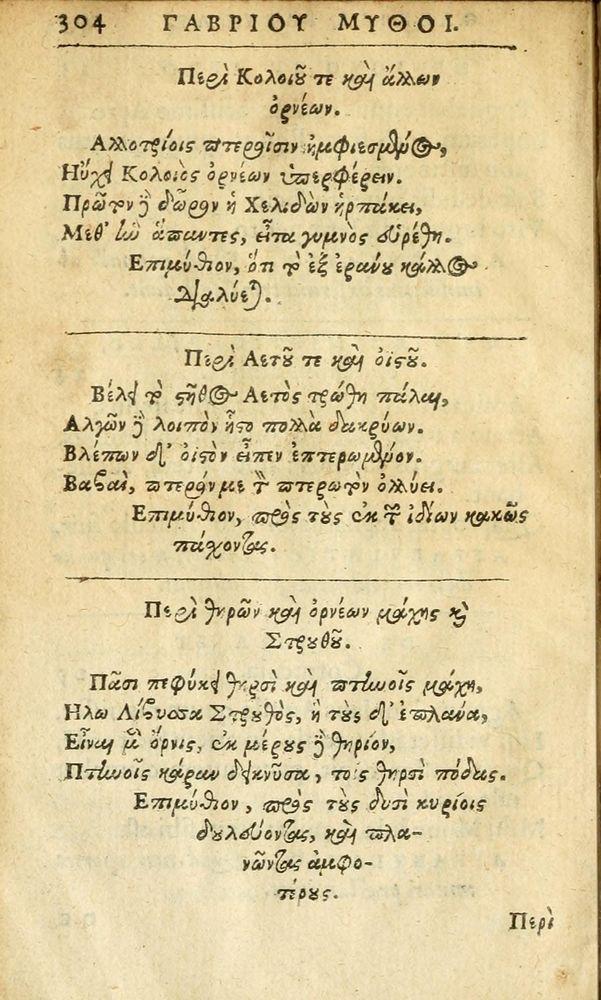 304 ΓΑΒΡΙΟΥ ΜΥΘΟΙ.
Περὶ Κολοιοῦ τε καὶ ἄλλων
ὀρνέων.
Αλλοτρίοις πτεροῖσιν ἠμφιεσμένος,
Ηὔχει Κολοιὸς ὀρνέων ὑπερφέρειν.
Πρῶτον δὲ δῶρον ἡ Χελιδὼν ἡρπάκει,
Μεθ' ἣν ἅπαντες, εἶτα γυμνὸς εὑρέθη.
Επιμύθιον, ὅτι τὸ ἐξ ἐράνου κάλλος
διαλύεται.
Περὶ Αετοῦ τε καὶ οἰστοῦ.
Βέλει τὸ στῆθος Αετὸς τρώθη πάλαι,
Αλγῶν δὲ λοιπὸν ἧστο πολλὰ δακρύων.
Βλέπων δ' οἰστὸν εἶπεν ἐπτερωμένον.
Βαβαὶ, πτερόν με τὸν πτερωτὸν ὀλλύει.
Επιμύθιον, πρὸς τοὺς ἐκ τῶν ἰδίων κακῶς
πάσχοντας.
Περὶ θηρῶν καὶ ὀρνέων μάχης καὶ
Στρουθοῦ.
Πᾶσι πεφύκει θηρσὶ καὶ πτηνοῖς μάχη,
Ηλω Λίβυσσα Στρουθὸς, ἡ τοὺς δ' ἐπλάνα,
Εἶναι μὲν ὄρνις, ἐκ μέρους δὲ θηρίον,
Πτηνοῖς κάραν δεικνῦσα, τοῖς θηρσὶ πόδας.
Επιμύθιον, πρὸς τοὺς δυσὶ κυρίοις
δουλεύοντας, καὶ πλα-
νῶντας ἀμφο-
τέρους.
Περὶ